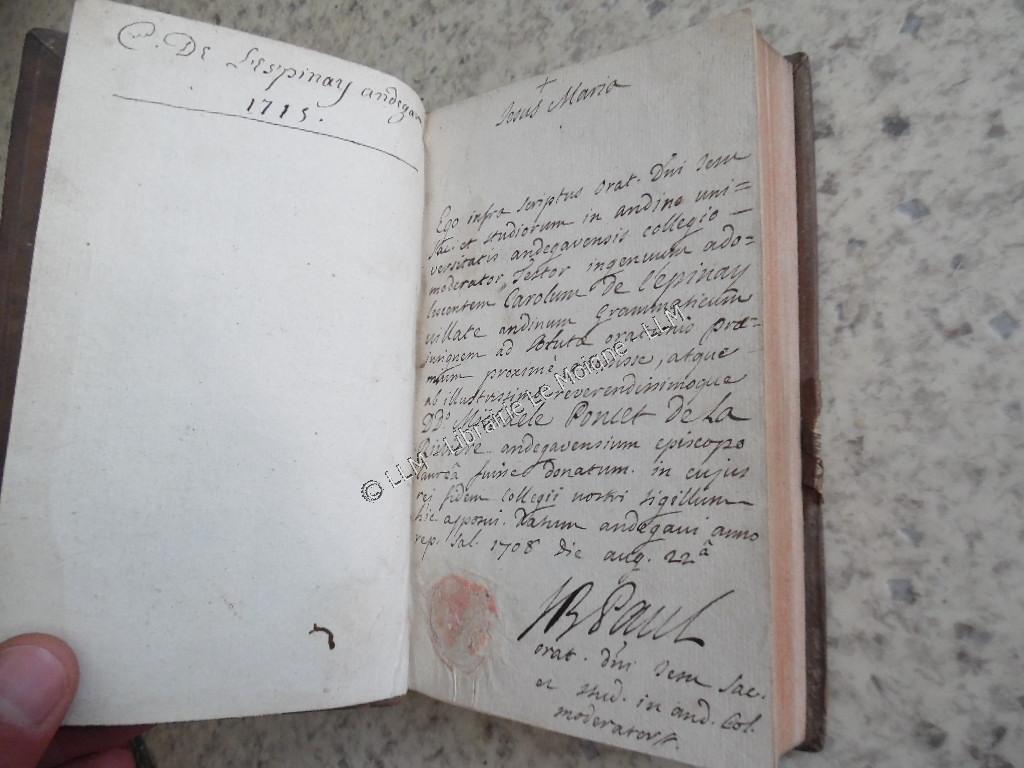 C. De Lespinay andegav
1715.
+
Jesus Maria
Ego infra scriptus orat. D'ni Jesu
Sac. et studiorum in andine uni=
versitatis andegavensis collegio —
moderator, testor ingenuum ado=
lescentem Carolum de l'epinay
andinum Grammaticum
ad orationis præ=
mium proximè , atque
ab illustrissimo reverendissimoque
DD. Michaele Poncet de La
Riviere andegavensium episcopo
laureâ fuisse donatum. in cujus
rei fidem collegii nostri sigillum
hic apposui. Datum andegavi anno
rep. Sal. 1708 die aug. 22â
JB Paul
orat. d'ni Jesu Sac.
et stud. in and. Col.
moderator.
© LLM - Librairie Le Moigne - LLM